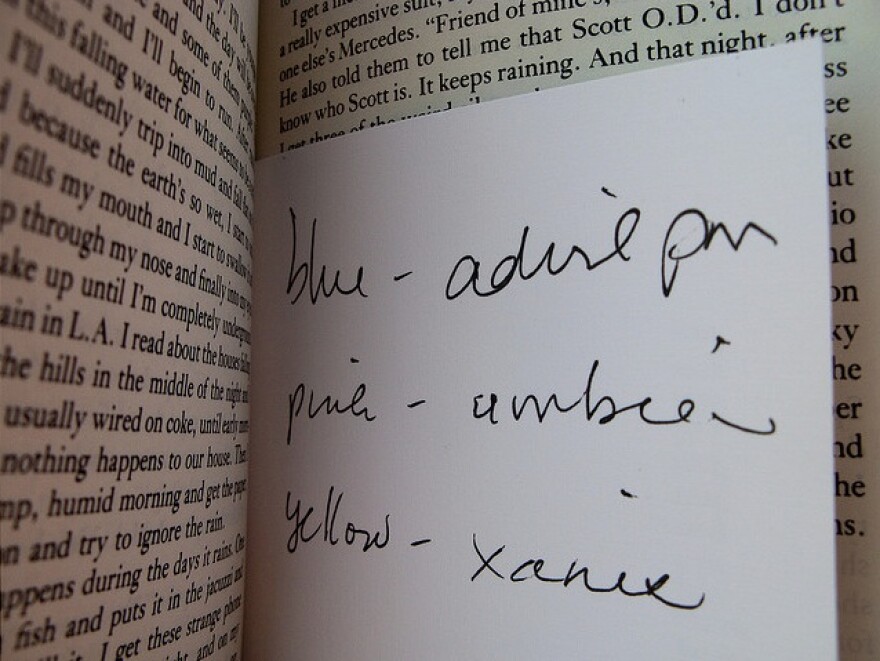 and the day will
and some of them
this falling and I'll begin to run.
I'll suddenly water for what seems
because trip into mud and fall
the earth's so wet, I start
fills my mouth and I start to swallow
p through my nose and finally into my
ake up until I'm completely underground
ain in L.A. I read about the houses falling
the hills in the middle of the night and
usually wired on coke, until early
nothing happens to our house. Then
mp, humid morning and get the paper
on and try to ignore the rain.
ppens during the days it rains. One
fish and puts it in the jacuzzi and
I get these strange phone
and on my
I get a
a really expensive suit,
one else's Mercedes. "Friend of mine's,
He also told them to tell me that Scott O.D.'d. I don't
know who Scott is. It keeps raining. And that night, after
I get three of the weird
ss
ee
ke
ut
io
nd
on
ky
he
er
nd
he
ns.
blue - advil pm
pink - ambien
yellow - xanex